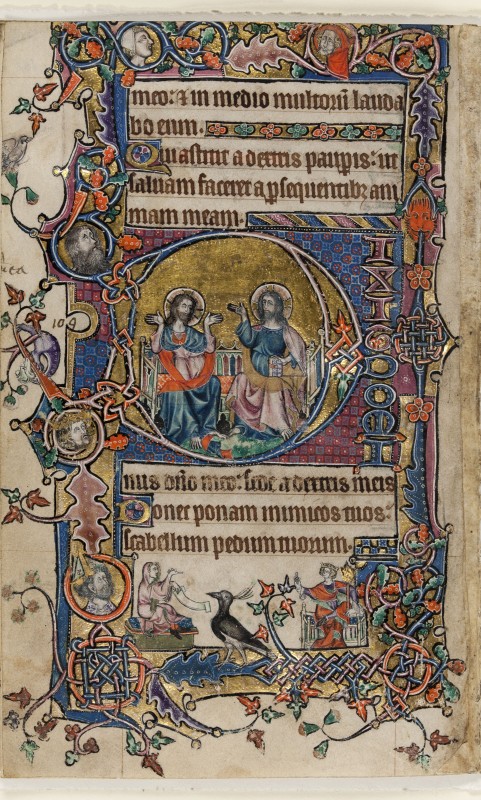 meo: & in medio multorū lauda
bo eum.
Quastitit a dextris paupis: ut
saluam faceret a psequentibz ani
mam meam.
109
DIXIT DOMI
nus dño meo: sede a dextris meis
Donec ponam inimicos tuos:
scabellum pedum tuorum.